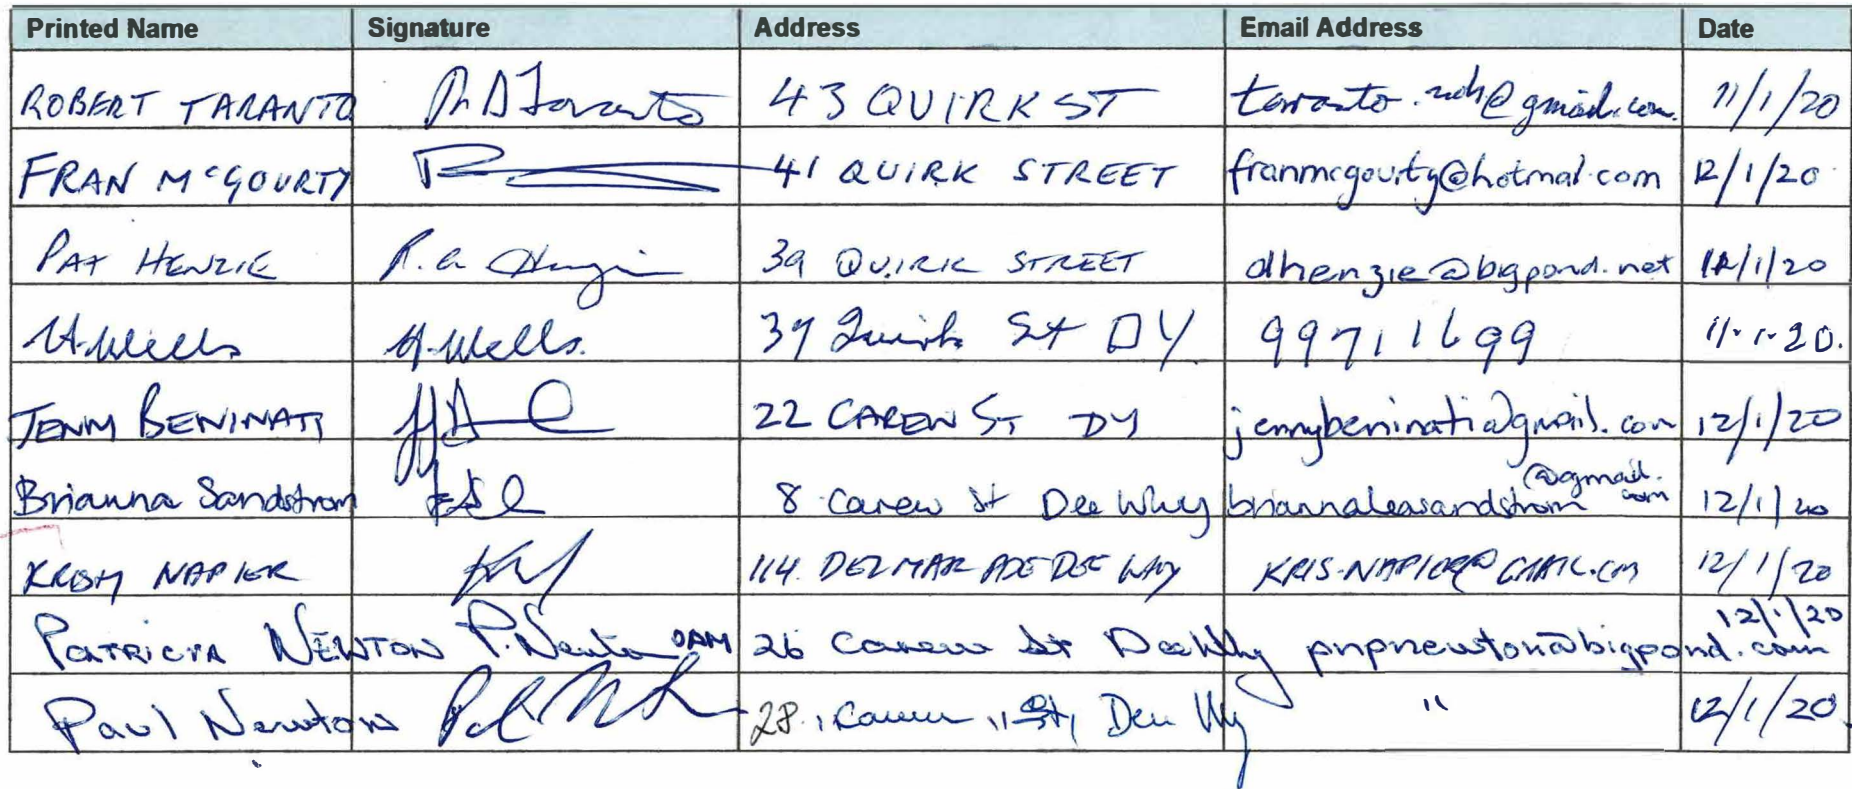 Printed Name Signature Address Email Address Date
ROBERT TARANTO R D Taranto 43 QUIRK ST @gmail.com. 11/1/20
FRAN McGOURTY 41 QUIRK STREET franmcgourty@hotmal.com 12/1/20
PAT HENZIE P. a. Henzie 39 QUIRK STREET dhenzie@bigpond.net 12/1/20
H. Wells H. Wells. 37 Quirk St DY 99711699 11.1.20.
JENNY BENINATI 22 CAREW ST DY jennybeninati@gmail.com 12/1/20
Brianna Sandstrom 8 Carew St Dee Why briannaleasandstrom @gmail.com 12/1/20
NAPIER 114 DELMAR PDE DEE WHY KRIS.NAPIER@GMAIL.COM 12/1/20
PATRICIA NEWTON P. Newton OAM 26 Carew St Dee Why pnpnewton@bigpond.com 12/1/20
Paul Newton 28 Carew St, Dee Why " 12/1/20